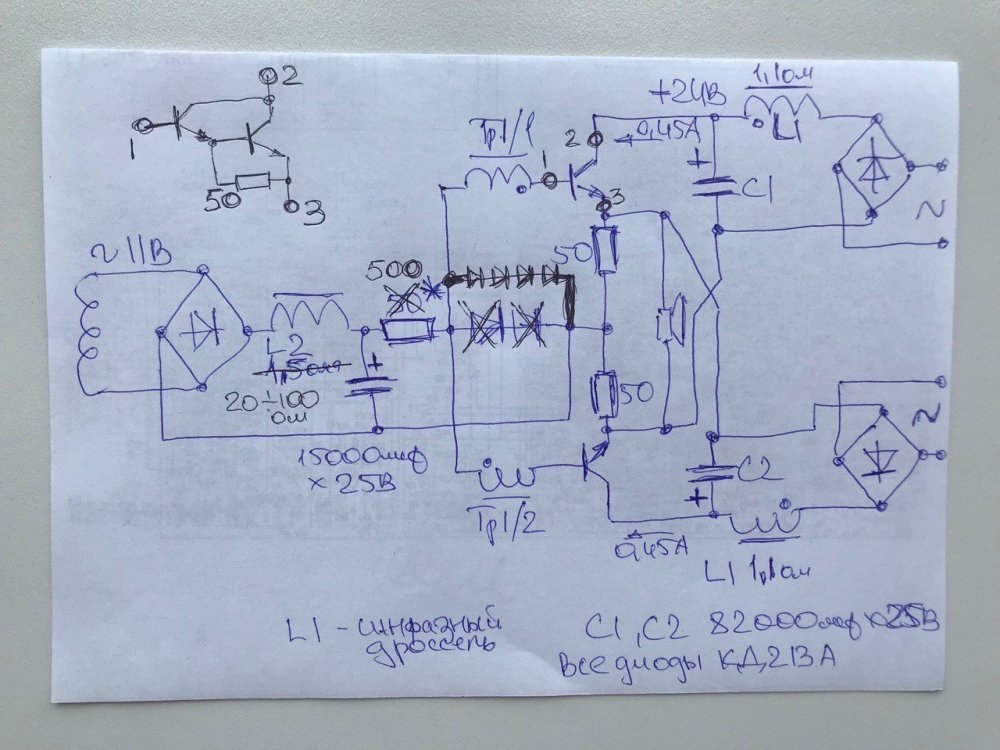 2
1
50
3
~ 11В
L2
1,5ом
20÷100
ом
15000мкф
× 25В
500
50
*
Тр1/1
1
2
3
+24В
0,45А
1,1ом
L1
+
C1
~
50
50
+
Тр1/2
0,45А
C2
+
L1 1,1ом
~
L1 - синфазный
дроссель
C1, C2 82000мкф х 25В
Все диоды КД213А